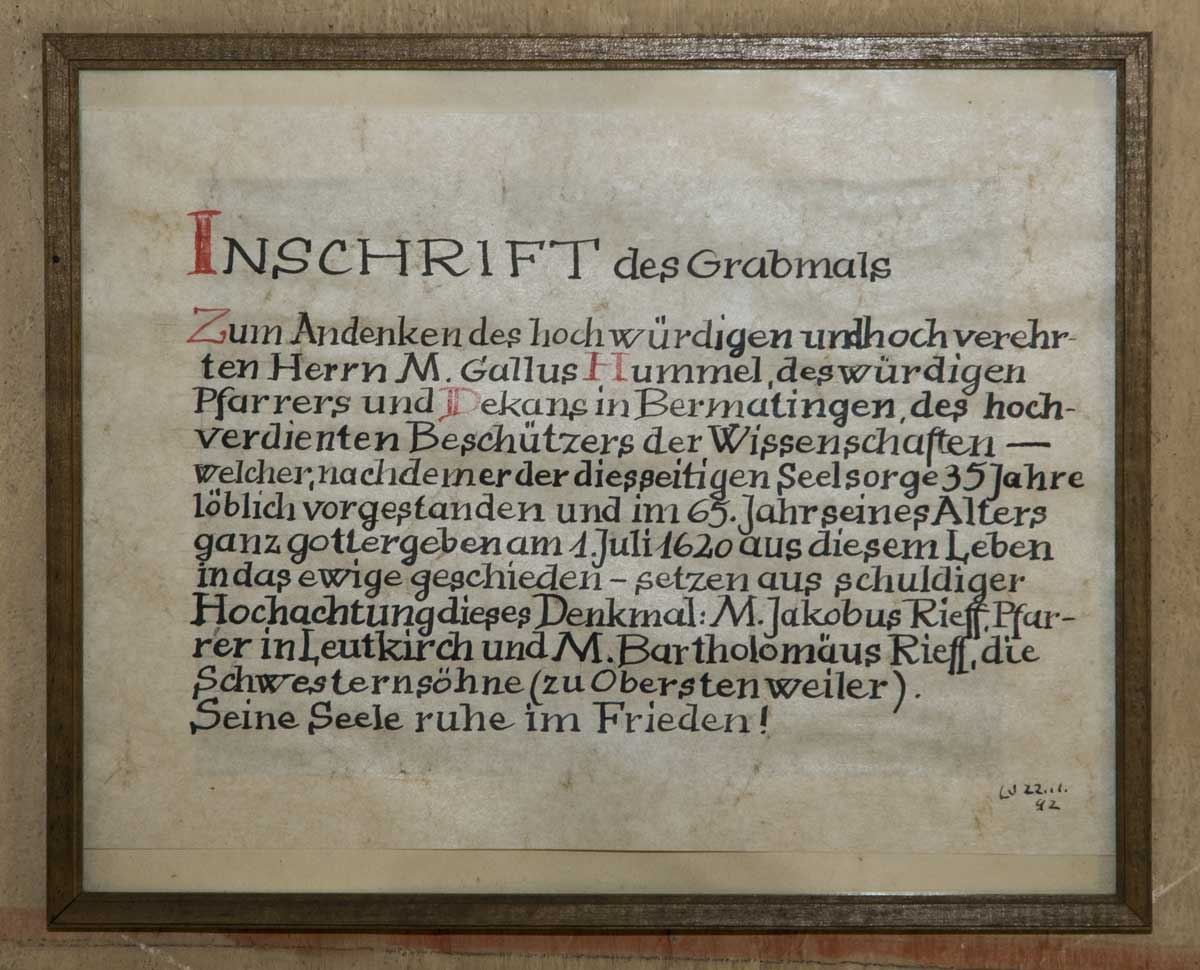 INSCHRIFT des Grabmals
Zum Andenken des hochwürdigen und hochverehr-
ten Herrn M. Gallus Hummel, des würdigen
Pfarrers und Dekans in Bermatingen, des hoch-
verdienten Beschützers der Wissenschaften —
welcher, nachdem er der diesseitigen Seelsorge 35 Jahre
löblich vorgestanden und im 65. Jahr seines Alters
ganz gottergeben am 1. Juli 1620 aus diesem Leben
in das ewige geschieden – setzen aus schuldiger
Hochachtung dieses Denkmal: M. Jakobus Rieff, Pfar-
rer in Leutkirch und M. Bartholomäus Rieff, die
Schwesternsöhne (zu Oberstenweiler).
Seine Seele ruhe im Frieden!
92